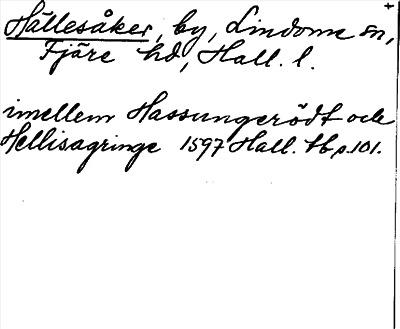 Hällesåker, by, Lindome sn,
Fjäre hd, Hall. l.
imellem Hassungerödt och
Hellisagringe 1597 Hall. tb p.101.